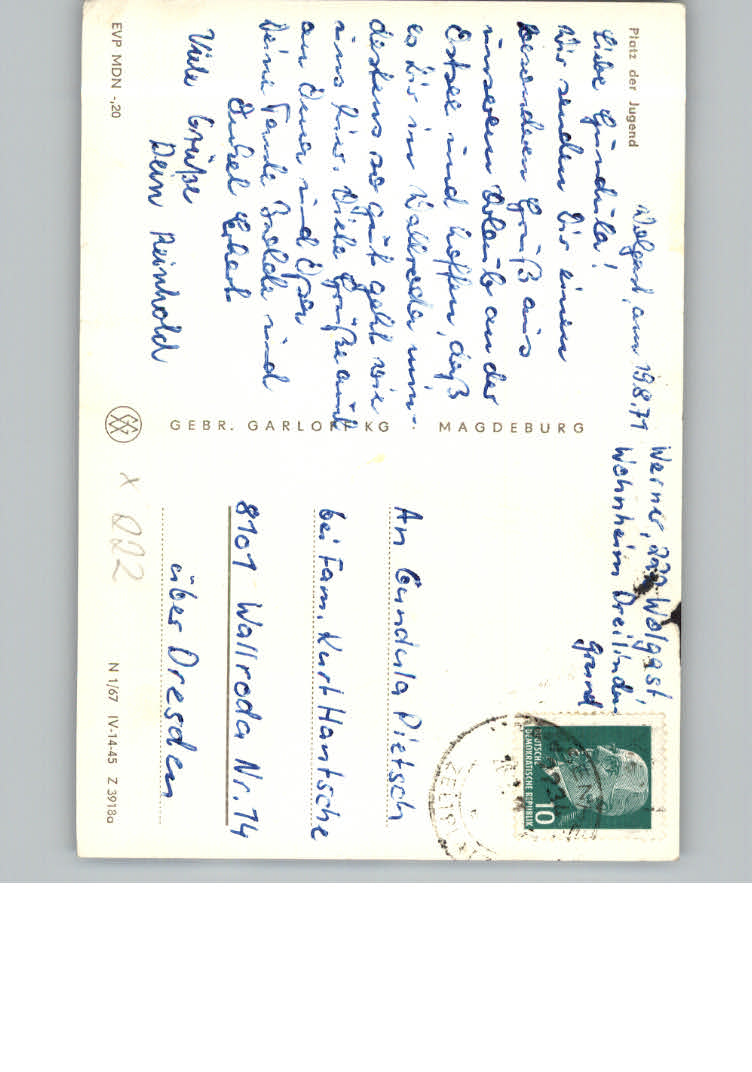 Platz der Jugend
Wolgast, am 19.8.71
Liebe Gundula!
Wir senden Dir einen
besonderen Gruß aus
unserem Urlaub an der
Ostsee und hoffen, daß
es Dir in Wallroda min-
destens so gut geht wie
uns hier. Viele Grüße auch
an Oma und Opa
Deine Tante und
Onkel
Viele Grüße
Dein Reinhold
EVP MDN -,20
GEBR. GARLOFF KG · MAGDEBURG
Werner, 220 Wolgast
Wohnheim Dreilinden
Grund
DEUTSCHE
DEMOKRATISCHE REPUBLIK
10
An Gundula Pietsch
bei Fam. Kurt Hantsche
8101 Wallroda Nr. 14
über Dresden
x 022
N 1/67 IV-14-45 Z 3918a